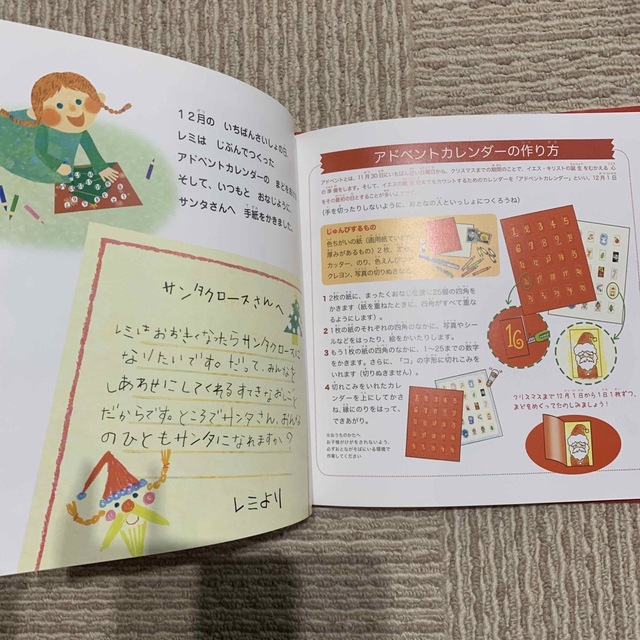 12月の いちばんさいしょの日、
レミは じぶんでつくった
アドベントカレンダーの まどをあけ
そして、いつもと おなじように、
サンタさんへ 手紙をかきました。
サンタクロースさんへ
レミはおおきくなったらサンタクロースに
なりたいです。だって、みんなを
しあわせにしてくれるすてきなおしごと
だからです。ところでサンタさん、おんな
のひともサンタになれますか?
レミより
アドベントカレンダーの作り方
アドベントとは、11月30日にいちばん近い日曜日から、クリスマスまでの期間のことで、イエス・キリストの誕生をむかえる心
の準備をします。そして、イエスの誕生日までをカウントするためのカレンダーを「アドベントカレンダー」といい、12月1日
をその最初の日とすることが多いようです。
(手を切ったりしないように、おとなの人といっしょにつくろうね)
じゅんびするもの
色ちがいの紙(画用紙ていどの
厚みがあるもの)2枚、
カッター、のり、色えんぴつ
クレヨン、写真の切りぬきなど
1 2枚の紙に、まったくおなじ位置に25個の四角を
かきます(紙を重ねたときに、四角がすべて重な
るようにします)。
2 1枚の紙のそれぞれの四角のなかに、写真やシー
ルなどをはったり、絵をかいたりします。
3 もう1枚の紙の四角のなかに、1〜25までの数字
をかきます。さらに、「コ」の字形に切れこみを
いれます(切りぬきません)。
4 切れこみをいれたカレ
ンダーを上にしてかさ
ね、縁にのりをはって、
できあがり。
※おうちのかたへ
お子様がけがをされないよう、
必ずおとながそばにいる環境で
作業してください
16
クリスマスまで12月1日から1日1枚ずつ、
まどをめくってたのしみましょう!